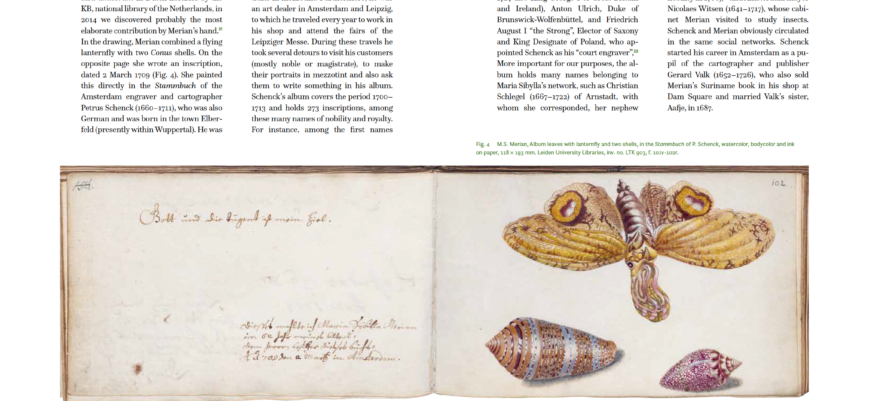 KB, national library of the Netherlands, in
2014 we discovered probably the most
elaborate contribution by Merian's hand.
In the drawing, Merian combined a flying
lanternfly with two Conus shells. On the
opposite page she wrote an inscription,
dated 2 March 1709 (Fig. 4). She painted
this directly in the Stammbuch of the
Amsterdam engraver and cartographer
Petrus Schenck (1660–1711), who was also
German and was born in the town Elber-
feld (presently within Wuppertal). He was
an art dealer in Amsterdam and Leipzig,
to which he traveled every year to work in
his shop and attend the fairs of the
Leipziger Messe. During these travels he
took several detours to visit his customers
(mostly noble or magistrate), to make
their portraits in mezzotint and also ask
them to write something in his album.
Schenck's album covers the period 1700–
1713 and holds 273 inscriptions, among
these many names of nobility and royalty.
For instance, among the first names
and Ireland), Anton Ulrich, Duke of
Brunswick-Wolfenbüttel, and Friedrich
August I “the Strong”, Elector of Saxony
and King Designate of Poland, who ap-
pointed Schenck as his “court engraver”.
More important for our purposes, the al-
bum holds many names belonging to
Maria Sibylla's network, such as Christian
Schlegel (1667–1722) of Arnstadt, with
whom she corresponded, her nephew
Nicolaes Witsen (1641–1717), whose cabi-
net Merian visited to study insects.
Schenck and Merian obviously circulated
in the same social networks. Schenck
started his career in Amsterdam as a pu-
pil of the cartographer and publisher
Gerard Valk (1652–1726), who also sold
Merian's Suriname book in his shop at
Dam Square and married Valk's sister,
Aafje, in 1687.
Fig. 4 M.S. Merian, Album leaves with lanternfly and two shells, in the Stammbuch of P. Schenck, watercolor, bodycolor and ink
on paper, 118 × 193 mm. Leiden University Libraries, inv. no. LTK 903, f. 101v-102r.
102
Gott und die tugent ist mein Ziel.
Maria Sybilla Merian
in Amsterdam.